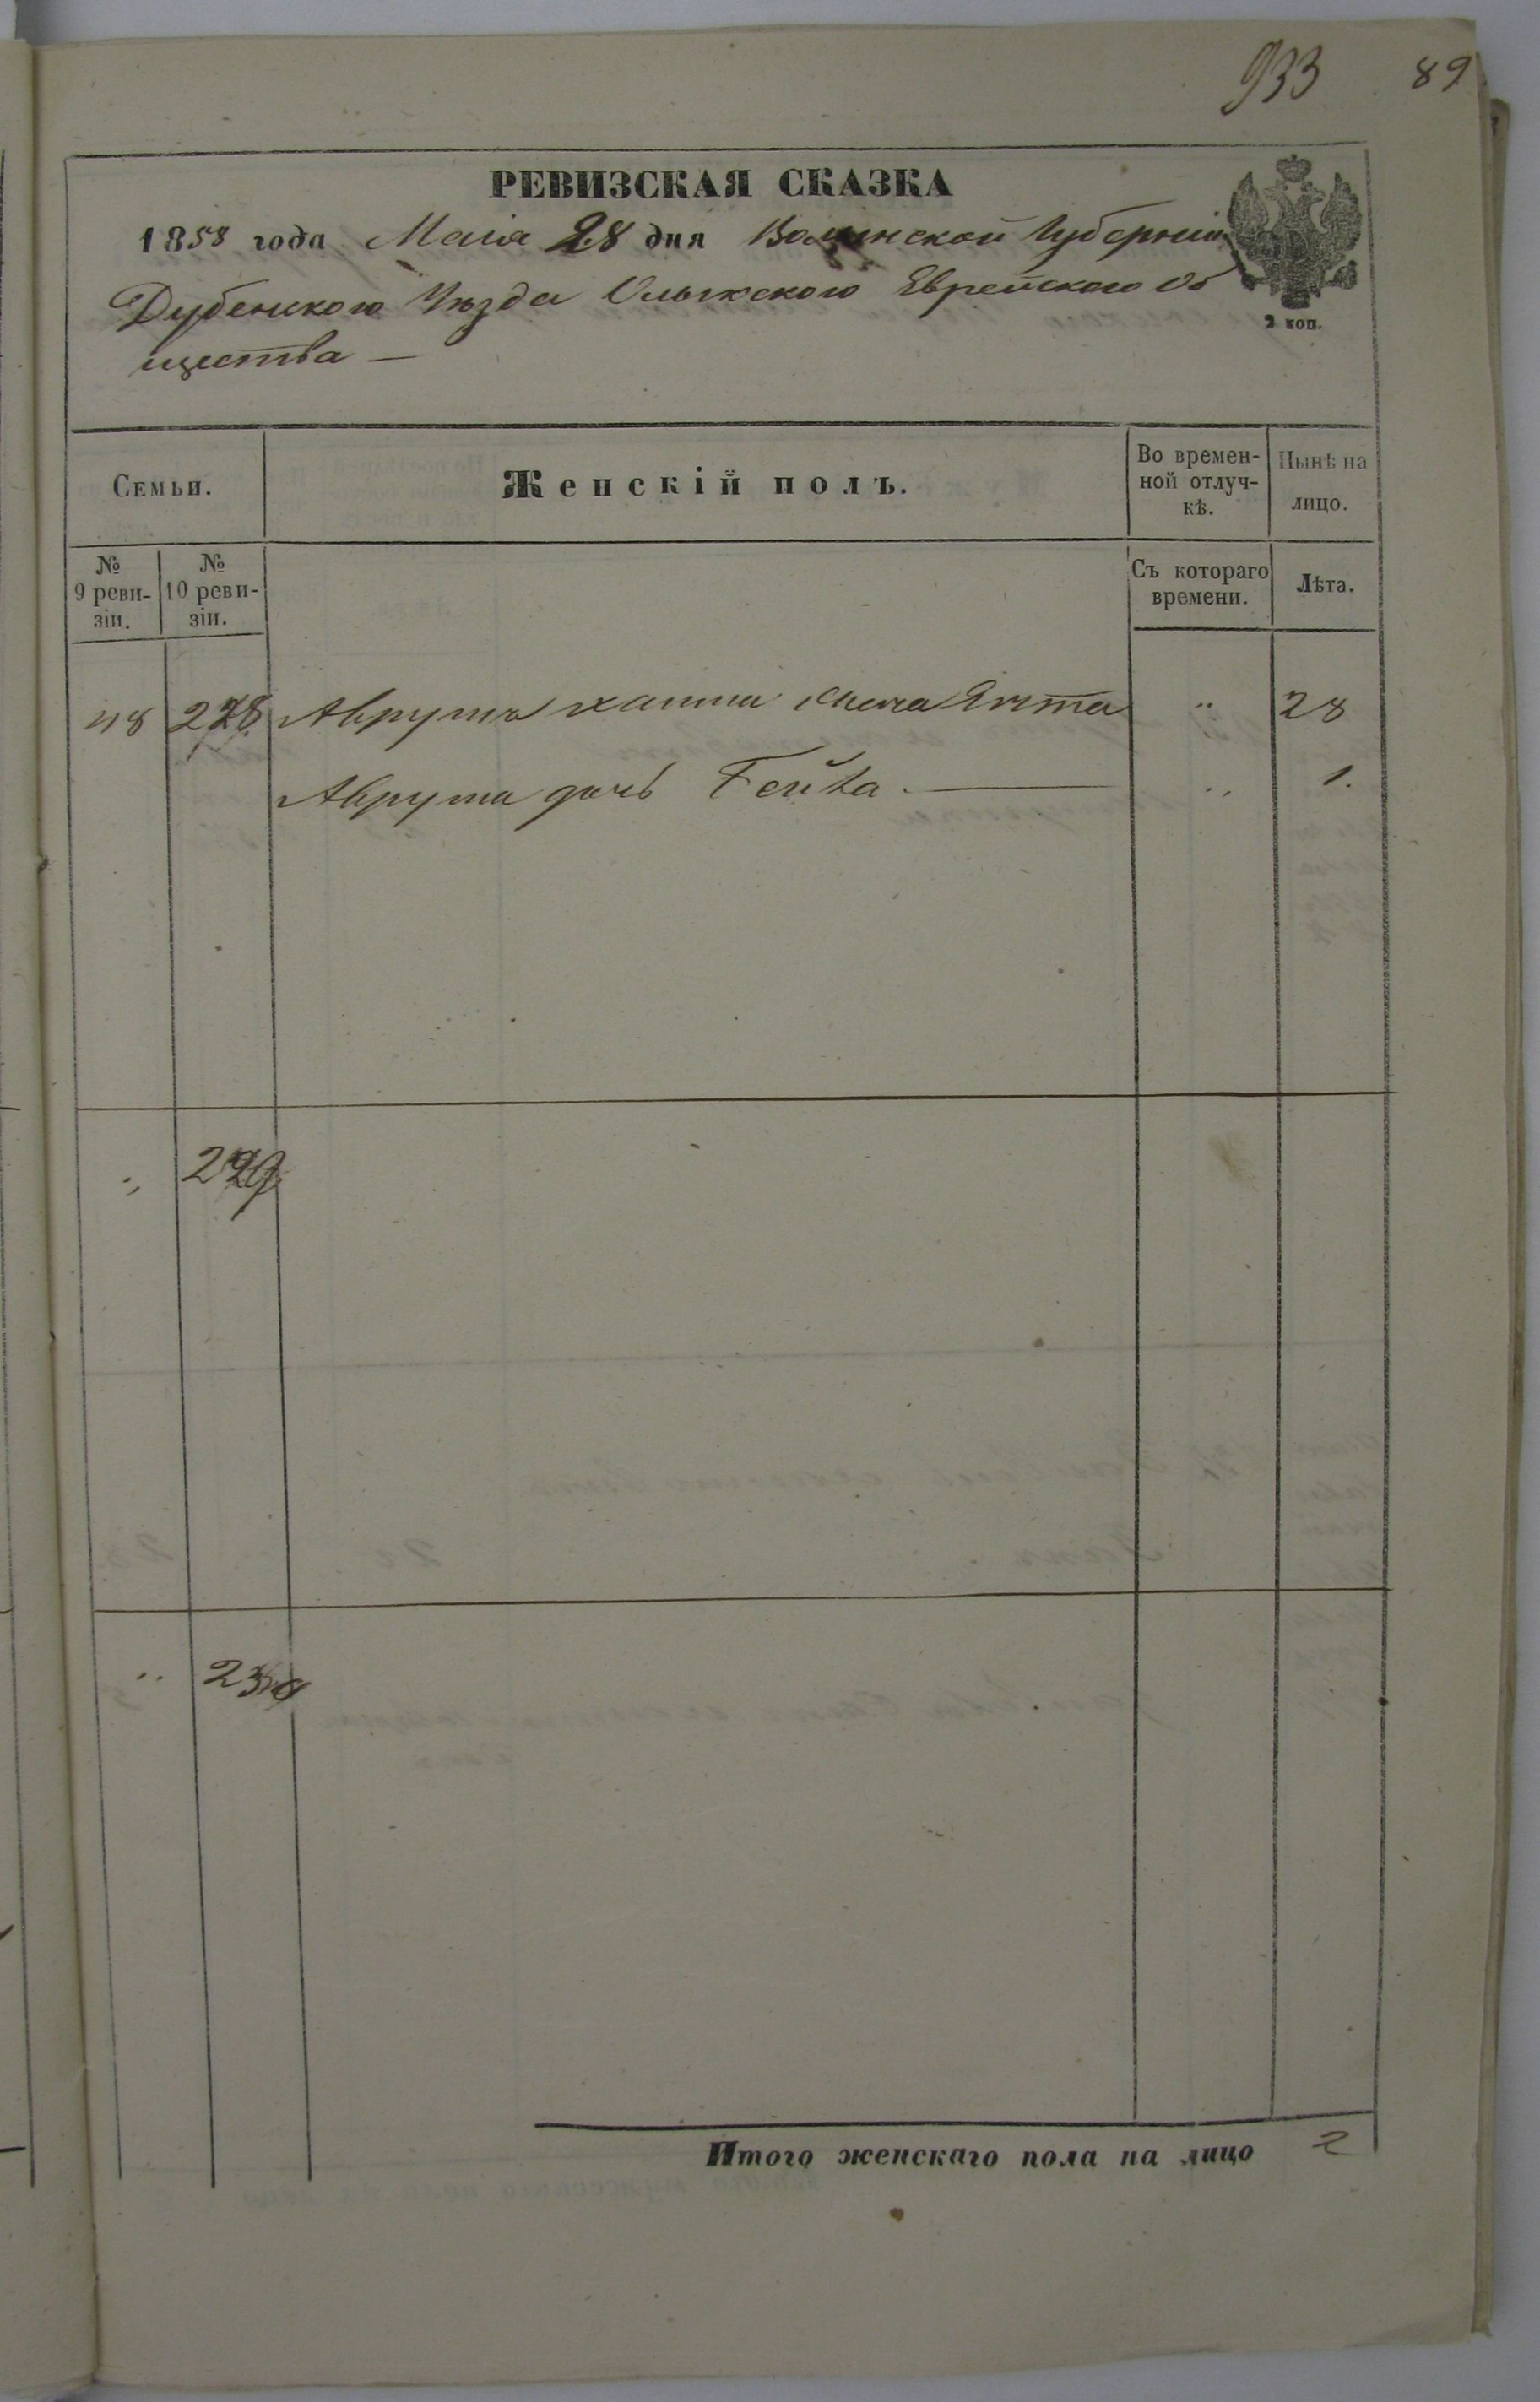 933 89
РЕВИЗСКАЯ СКАЗКА
1858 года Маія 28 дня Волынской Губерніи
Дубенского Уѣзда Олыкского Еврейского Об
щества —
2 коп.
Семьи.
Женскій полъ.
Во времен-
ной отлуч-
кѣ.
Нынѣ на
лицо.
№
9 реви-
зіи.
№
10 реви-
зіи.
Съ котораго
времени.
Лѣта.
48 228 Аврума жена " 28
Аврума дочь Гейка. — " 1.
" 229
" 230
Итого женскаго пола на лицо 2